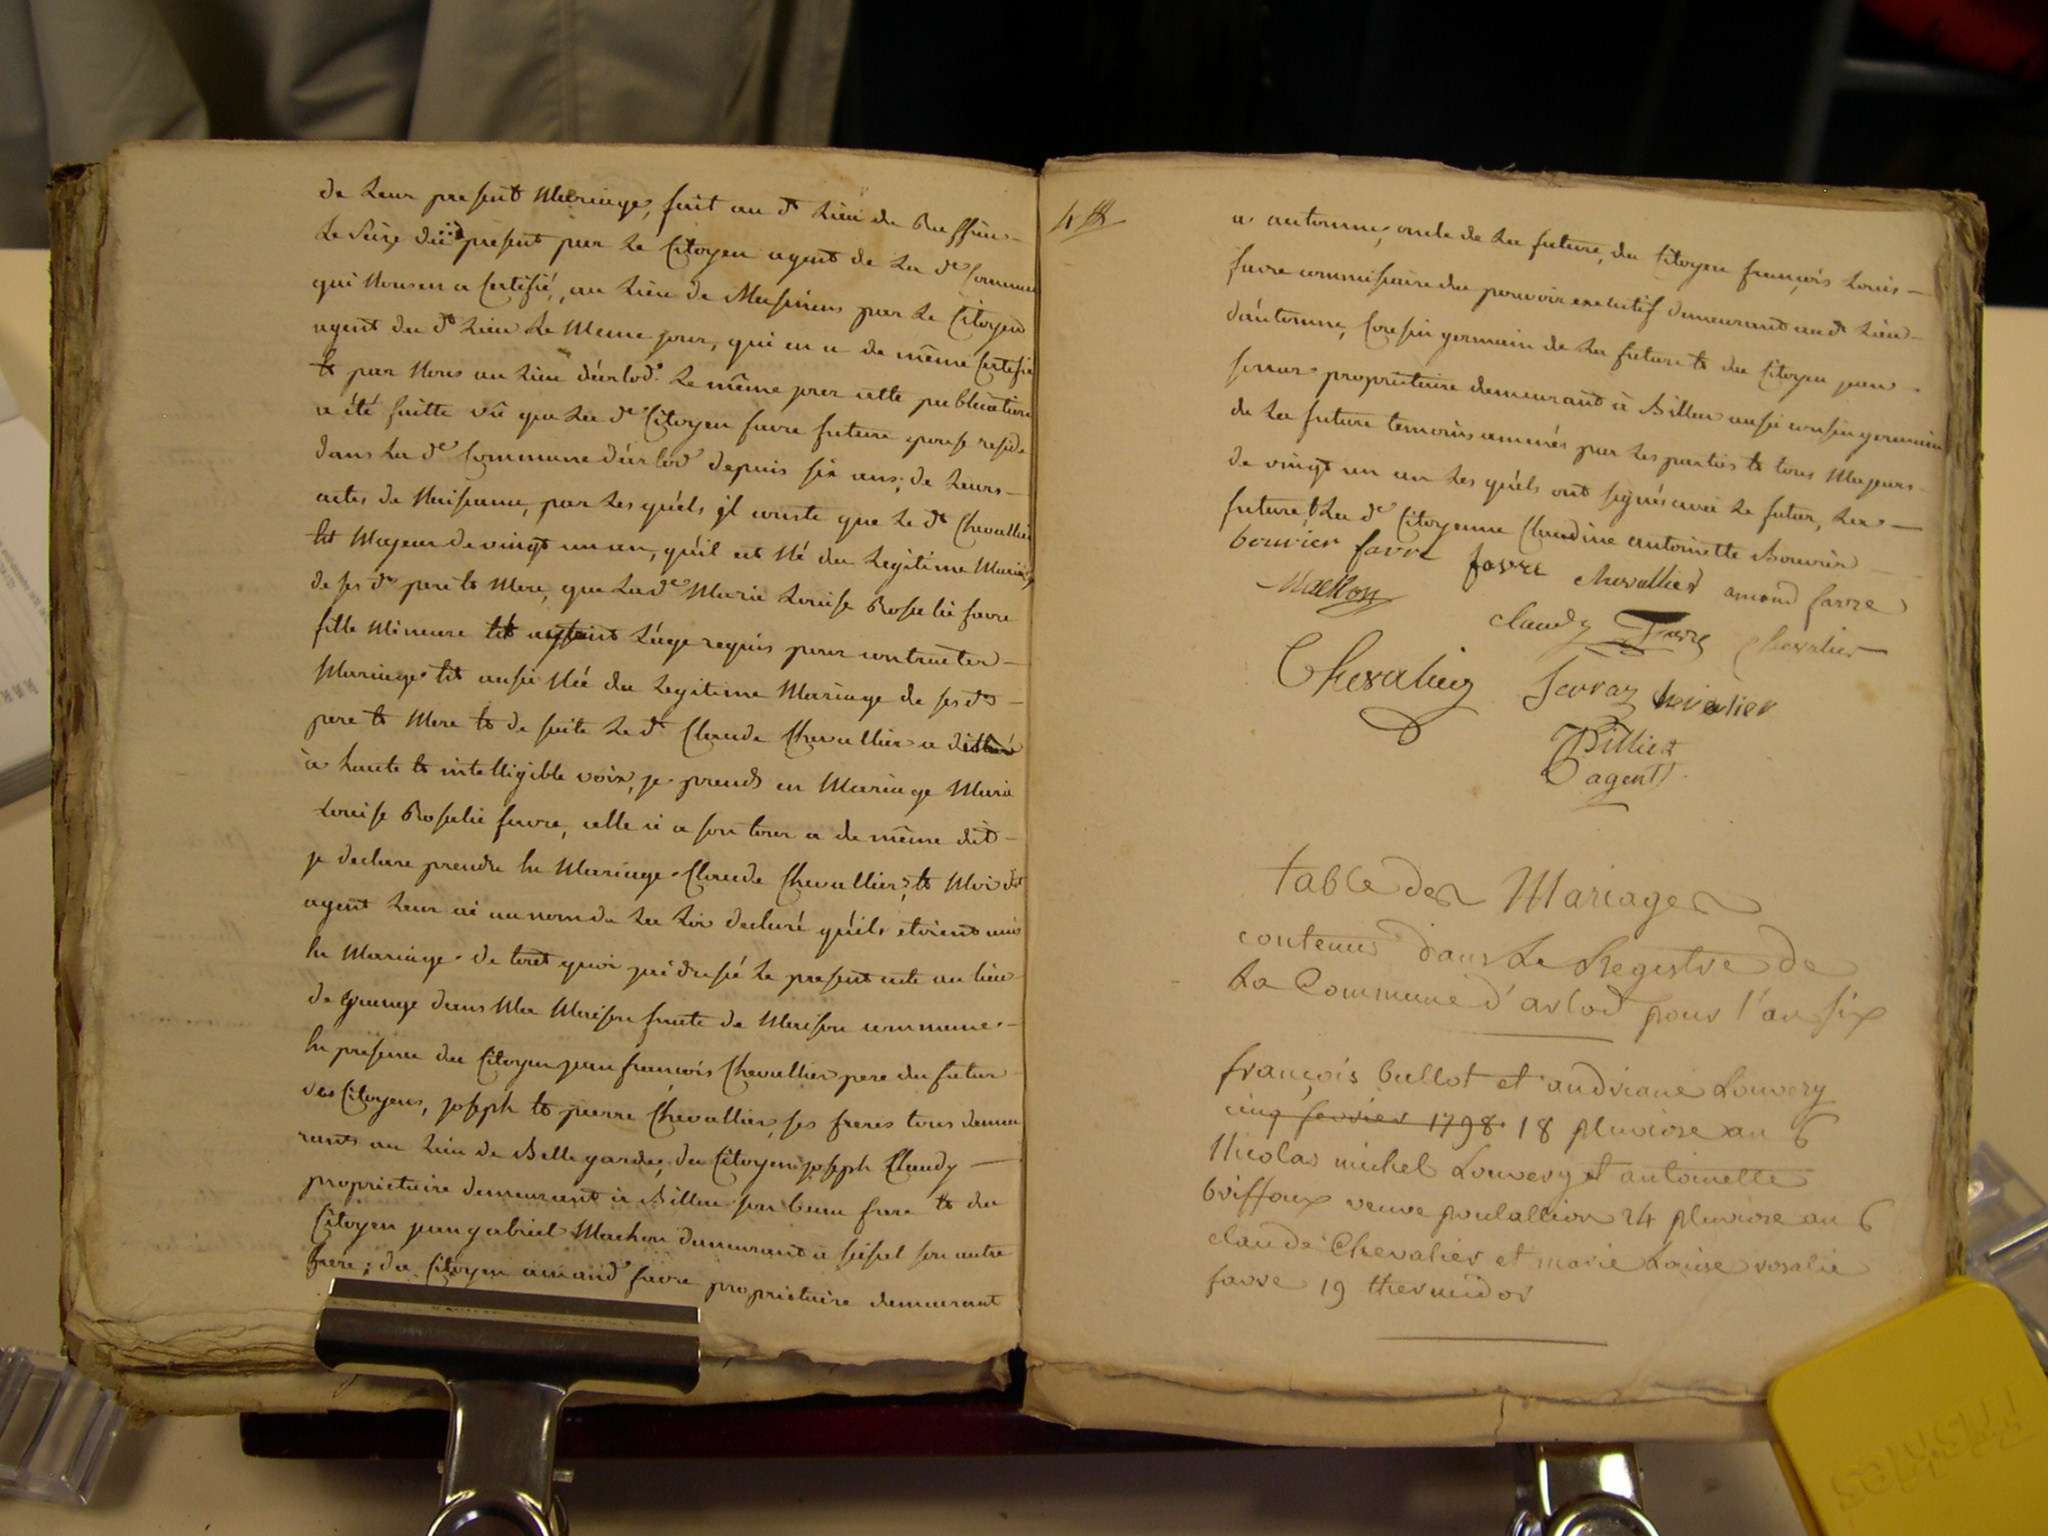 de Leur present Mariage, fait au dt Lieu de Ruffieu
Le seize du present par Le Citoyen agent de La de Commune
qui Nous en a Certifié, au Lieu de Musinens par Le Citoyen
agent du dt Lieu Le Meme jour, qui en a de même Certifié
et par Nous au Lieu d'arlod. Le même jour cette publication
a été faitte vû que La de Citoyen favre future epouse reside
dans La de Commune d'arlod depuis six ans, de Leurs
actes de Naissance, par Les quéls jl conste que Le dt Chevallier
est Majeur de vingt un an, qu'il est Né du Legitime Mariage
de ses ds pere et Mere, que La de Marie Louise Rosalie favre
fille Mineure et L'age requis pour contracter
Mariage est aussi Née du Legitime Mariage de ses ds
pere et Mere et de suite Le dt Claude Chevallier a
à haute et intelligible voix, je prends en Mariage Marie
Louise Rosalie favre, celle ci a son tour a de même dit
je declare prendre En Mariage Claude Chevallier, et Moi dt
agent Leur ai au nom de La Loi declaré qu'éils etoient unis
En Mariage. de tout quoi jai dressé Le present acte au Lieu
de Grange dans Ma Maison faute de Maison commune.
En presence du Citoyen jean françois Chevallier pere du futur
des Citoyens, joseph et pierre Chevallier, ses freres tous demeu
rants au Lieu de Belle garde, du Citoyen joseph Claudy
proprietaire demeurant à Billiu son beau frere et du
Citoyen jean gabriel Machon demeurant a seissel son autre
frere; du Citoyen amand favre proprietaire demeurant
4
a autonne, oncle de La future, du Citoyen françois Louis
favre commissaire du pouvoir executif demeurant au dt Lieu
d'autonne, Cousin germain de La future et du Citoyen jean
proprietaire demeurant à Billiu aussi cousin germain
de La future temoins amenés par Les parties et tous Majeurs
de vingt un an Les quéls ont signés avec Le futur, La
future, La de Citoyenne Claudine antoinette Bouvier
bouvier favre favre chevallier amand favre
Machon claudy favre Chevalier
Chevalier chevalier
Billiet
agent.
table des Mariages
contenus dans Le Registre de
La Commune d'arlod pour l'an six
françois bullot et andriane Louvery
cinq fevrier 1798. 18 pluviose an 6
Nicolas michel Louvery et antoinette
briffoux veuve poulallion 24 pluviose an 6
claude Chevalier et marie Louise rosalie
favre 19 thermidor